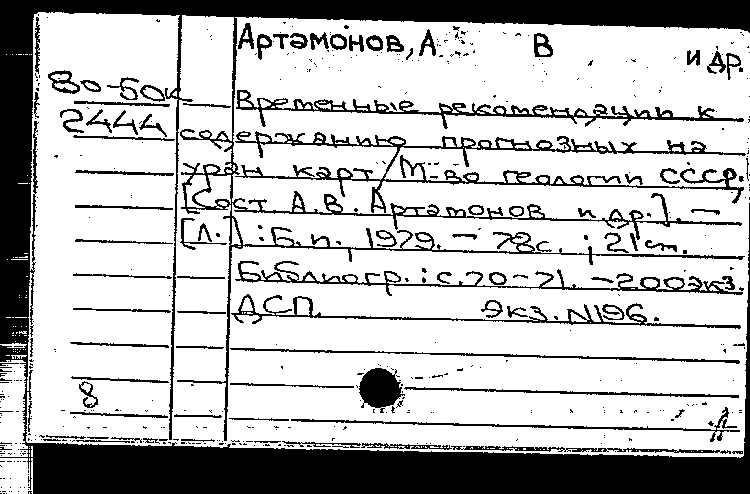 Артамонов, А В и др.
80-50к
Временные рекомендации к
2444 содержанию прогнозных на
уран карт / М-во геологии СССР;
[Сост А.В. Артамонов и др.]. —
[Л.] : Б.и., 1979. — 78с. ; 21 см.
Библиогр.: с.70-71. — 200экз.
ДСП. Экз. N196.
8